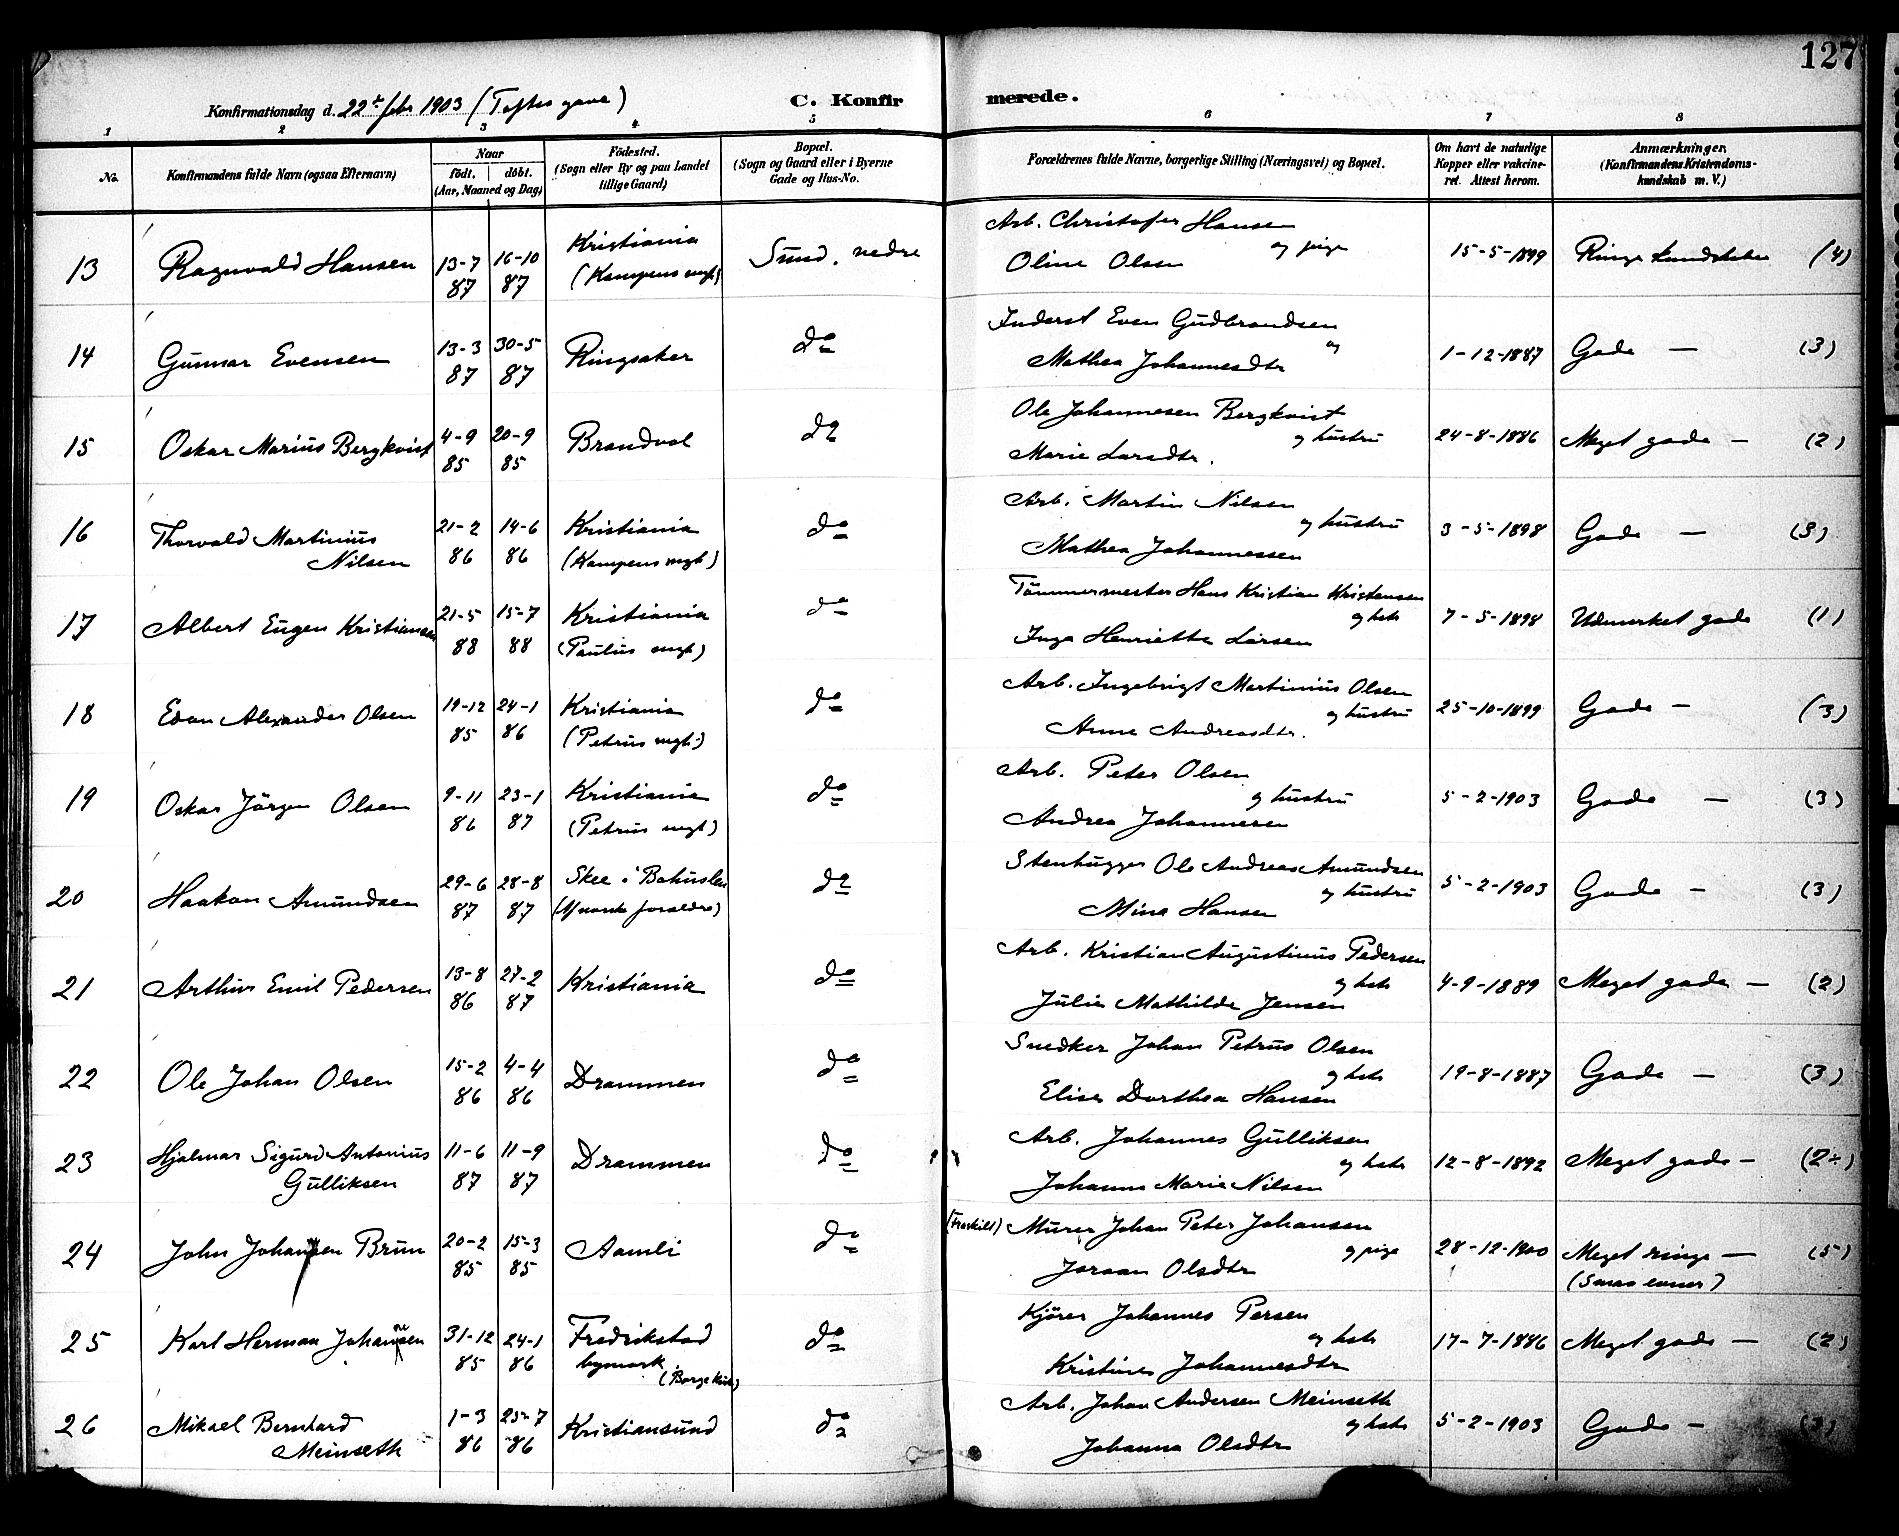 127
Konfirmationsdag d. 22de febr 1903 (Toftes gave)
C. Konfirmerede.
1 2 3 4 5 6 7 8
No. Konfirmandens fulde Navn (ogsaa Efternavn) Naar födt. döbt. (Aar, Maaned og Dag) Födested. (Sogn eller By og paa Landet tillige Gaard) Bopæl. (Sogn og Gaard eller i Byerne Gade og Hus-No. Forældrenes fulde Navne, borgerlige Stilling (Næringsvei) og Bopæl. Om havt de naturlige Kopper eller vakcineret. Attest herom. Anmærkninger. (Konfirmandens Kristendomskundskab m. V.)
13 Ragnvald Hansen 13-7 87 16-10 87 Kristiania (Kampens mgh) Sund, nedre Arb. Christofer Hansen og pige Oline Olsen 15-5-1899 Ringe kundskaber (4)
14 Gunnar Evensen 13-3 87 30-5 87 Ringsaker do Inderst Even Gudbrandsen og Mathea Johannesdtr 1-12-1887 Gode — (3)
15 Oskar Marius Bergkvist 4-9 85 20-9 85 Brandval do Ole Johannesen Bergkvist og hustru Marie Larsdtr. 24-8-1886 Meget gode — (2)
16 Thorvald Martinius Nilsen 21-2 86 14-6 86 Kristiania (Kampens mgh) do Arb. Martin Nilsen og hustru Mathea Johannessen 3-5-1898 Gode — (3)
17 Albert Eugen Kristiansen 21-5 88 15-7 88 Kristiania (Paulus mgh) do Tömmermester Hans Kristian Kristensen og hstr Inga Henriette Larsen 7-5-1898 Udmerket gode (1)
18 Evan Alexander Olsen 19-12 85 24-1 86 Kristiania (Petrus mgh) do Arb. Ingebrigt Martinius Olsen og hustru Anne Andreasdtr. 25-10-1899 Gode — (3)
19 Oskar Jörgen Olsen 9-11 86 23-1 87 Kristiania (Petrus mgh) do Arb. Peter Olsen og hustru Andrea Johannesen 5-2-1903 Gode — (3)
20 Haakon Amundsen 29-6 87 28-8 87 Skee i Bohuslen (Af norske forældre) do Stenhugger Ole Andreas Amundsen og hustru Mina Hansen 5-2-1903 Gode — (3)
21 Arthur Emil Pedersen 13-8 86 27-2 87 Kristiania do Arb. Kristian Augustinus Pedersen og hstr Julie Mathilde Jensen 4-9-1889 Meget gode — (2)
22 Ole Johan Olsen 15-2 86 4-4 86 Drammen do Snedker Johan Petrus Olsen og hstr Elise Dorthea Hansen 19-8-1887 Gode — (3)
23 Hjalmar Sigurd Antonius Gulliksen 11-6 87 11-9 87 Drammen do Arb. Johannes Gulliksen og hstr Johanne Marie Nilsen 12-8-1892 Meget gode — (2÷)
24 John Johansen Brun 20-2 85 15-3 85 Aamli do (Fraskilt) Murer Johan Peter Johansen og pige Joraan Olsdtr 28-12-1900 Meget ringe — (Smaa evner) (5)
25 Karl Herman Johansen 31-12 85 24-1 86 Fredrikstad bymark (Borge kirke) do Kjörer Johannes Persen og hstr Kristine Johannesdtr 17-7-1886 Meget gode — (2)
26 Mikael Bernhard Meinseth 1-3 86 25-7 86 Kristiansund do Arb. Johan Andersen Meinseth og hstr Johanna Olsdtr 5-2-1903 Gode — (3)